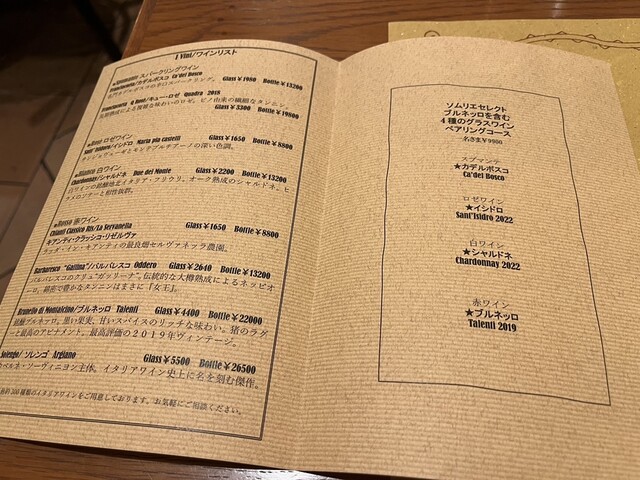 I Vini/ワインリスト
★Spumante スパークリングワイン
Franciacorta/カデルボスコ Ca'del Bosco Glass￥1980 Bottle￥13200
Franciacorta Q Rosé/キュー・ロゼ Quadra 2018
Glass￥3300 Bottle￥19800
★Rosé ロゼワイン
Sant' Isidoro/イシドロ Maria pia castelli Glass￥1650 Bottle￥8800
サンジョヴェーゼとモンテプルチアーノの深い色調。
★Bianco 白ワイン
Chardonnay/シャルドネ Due del Monte Glass￥2200 Bottle￥13200
★Rosso 赤ワイン
Chianti Classico RIS/La Servanella Glass￥1650 Bottle￥8800
キアンティ・クラッシコ・リゼルヴァ
ラッダ・イン・キアンティの最良畑セルヴァネッラ農園。
Barbaresco "Gallina"/バルバレスコ Oddero Glass￥2640 Bottle￥13200
バルバレスコのクリュ"ガッリーナ"。伝統的な大樽熟成によるネッビオ
ーロ。緻密で豊かなタンニンはまさに『女王』。
Brunello di Montalcino/ブルネッロ Talenti Glass￥4400 Bottle￥22000
ブルネッロ。黒い果実、甘いスパイスのリッチな味わい。猪のラグ
ーと最高のアビナメント。最高評価の2019年ヴィンテージ。
Solengo/ ソレンゴ Argiano Glass￥5500 Bottle￥26500
カベルネ・ソーヴィニヨン主体。イタリアワイン史上に名を刻む傑作。
約300種類のイタリアワインをご用意しております。お気軽にご相談ください。
ソムリエセレクト
ブルネッロを含む
4種のグラスワイン
ペアリングコース
名さま￥9900
スプマンテ
★カデルボスコ
Ca'del Bosco
ロゼワイン
★イシドロ
Sant'Isidro 2022
白ワイン
★シャルドネ
Chardonnay 2022
赤ワイン
★ブルネッロ
Talenti 2019